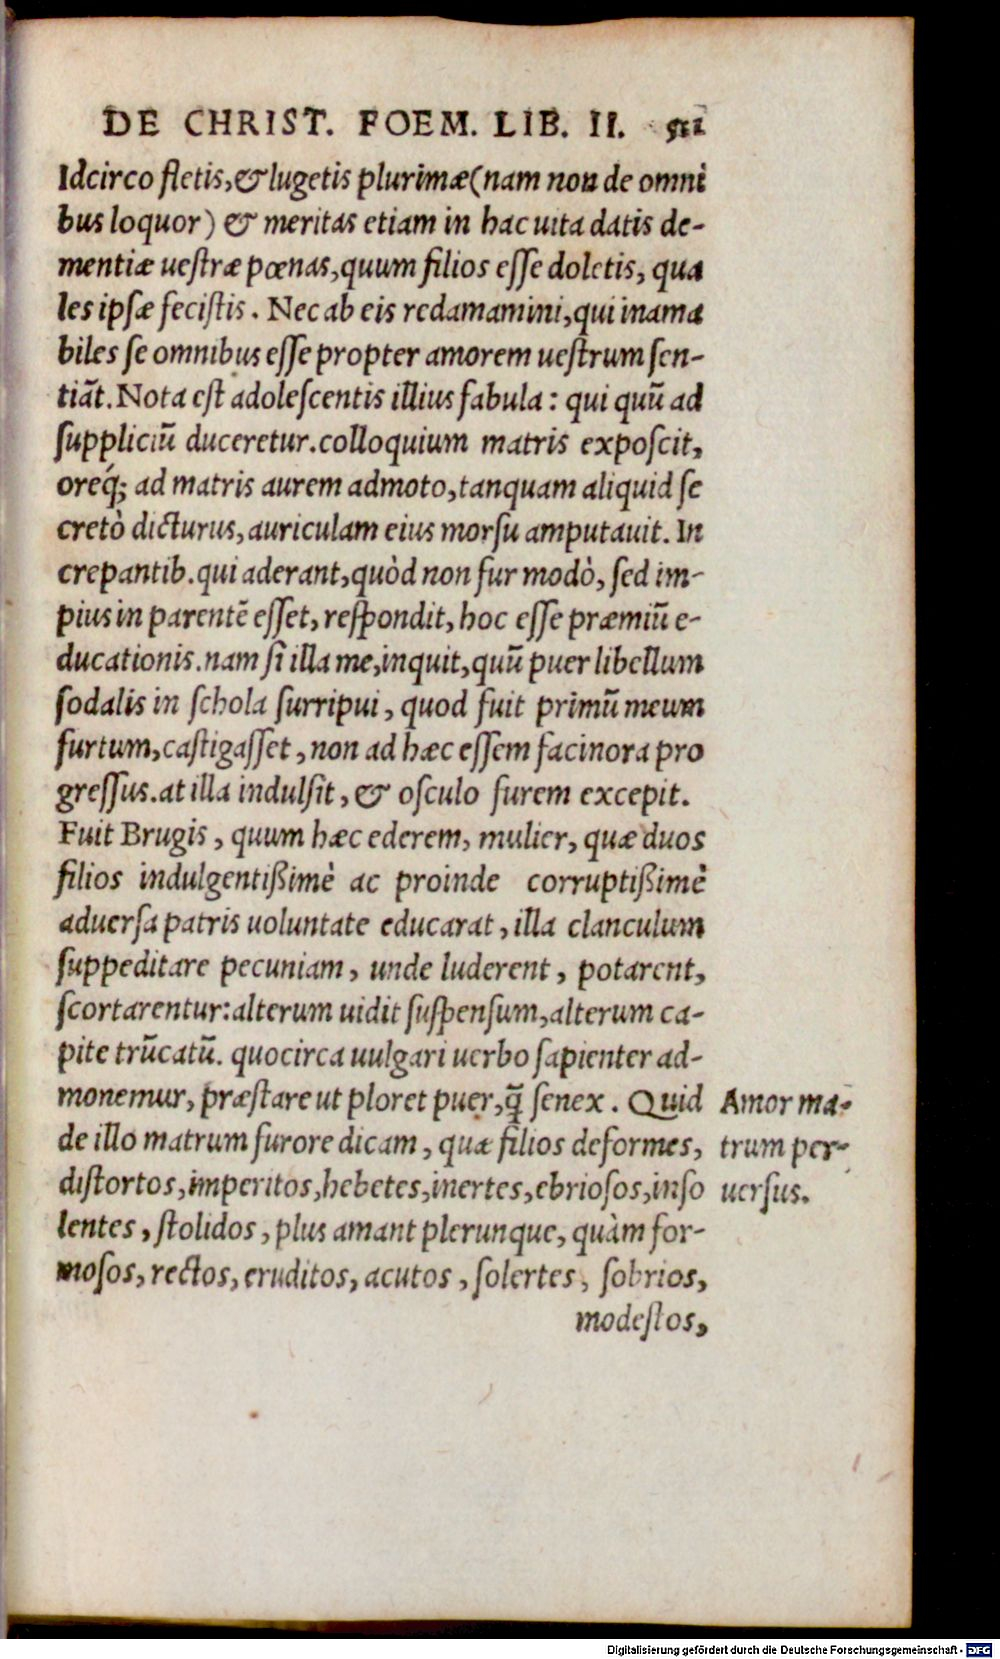 DE CHRIST. FOEM. LIB. II.
Idcirco fletis, & lugetis plurimæ (nam non de omni
bus loquor) & meritas etiam in hac uita datis de-
mentiæ uestræ pœnas, quum filios esse doletis, qua
les ipsæ fecistis. Nec ab eis redamamini, qui inama
biles se omnibus esse propter amorem uestrum sen-
tiāt. Nota est adolescentis illius fabula: qui quū ad
suppliciū duceretur. colloquium matris exposcit,
oreq́; ad matris aurem admoto, tanquam aliquid se
cretò dicturus, auriculam eius morsu amputauit. In
crepantib. qui aderant, quòd non fur modò, sed im-
pius in parentē esset, respondit, hoc esse præmiū e-
ducationis. nam si illa me, inquit, quū puer libellum
sodalis in schola surripui, quod fuit primū meum
furtum, castigasset, non ad hæc essem facinora pro
gressus. at illa indulsit, & osculo furem excepit.
Fuit Brugis, quum hæc ederem, mulier, quæ duos
filios indulgentißimè ac proinde corruptißimè
aduersa patris uoluntate educarat, illa clanculum
suppeditare pecuniam, unde luderent, potarent,
scortarentur: alterum uidit suspensum, alterum ca-
pite trūcatū. quocirca uulgari uerbo sapienter ad-
monemur, præstare ut ploret puer, q̄ senex. Quid
de illo matrum furore dicam, quæ filios deformes,
distortos, imperitos, hebetes, inertes, ebriosos, inso
lentes, stolidos, plus amant plerunque, quàm for-
mosos, rectos, eruditos, acutos, solertes, sobrios,
modestos,
Amor ma-
trum per-
uersus.
Digitalisierung gefördert durch die Deutsche Forschungsgemeinschaft - DFG